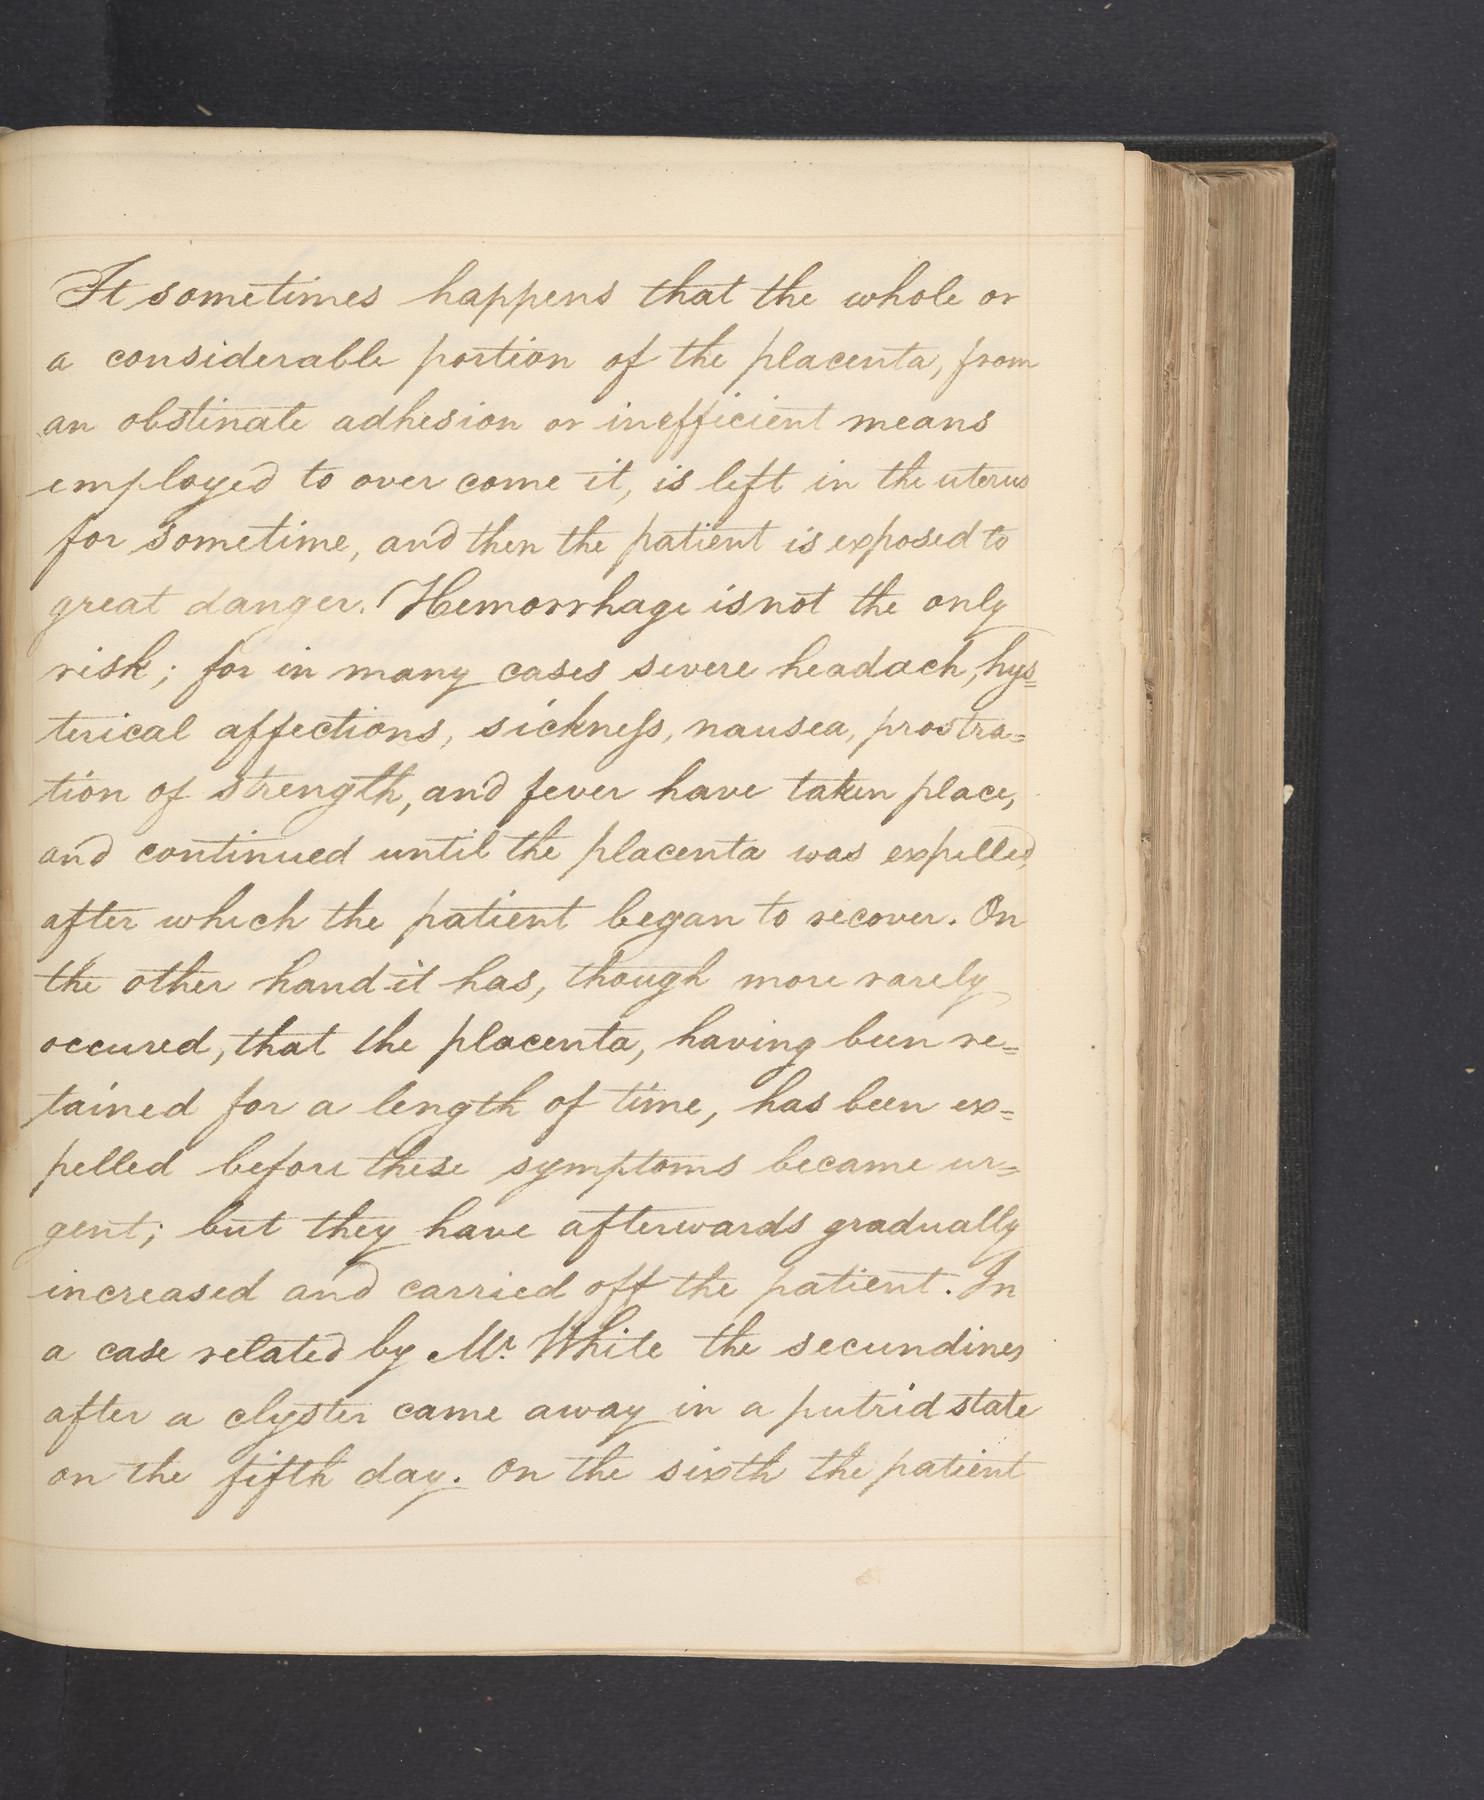 It sometimes happens that the whole or
a considerable portion of the placenta, from
an obstinate adhesion or inefficient means
employed to over come it, is left in the uterus
for sometime, and then the patient is exposed to
great danger. Hemorrhage is not the only
risk; for in many cases severe headach, hys=
terical affections, sickneſs, nausea, prostra=
tion of strength, and fever have taken place,
and continued until the placenta was expelled,
after which the patient began to recover. On
the other hand it has, though more rarely
occured, that the placenta, having been re=
tained for a length of time, has been ex=
pelled before these symptoms became ur=
gent; but they have afterwards gradually
increased and carried off the patient. In
a case related by Mr. White the secundines
after a clyster came away in a putrid state
on the fifth day. On the sixth the patient